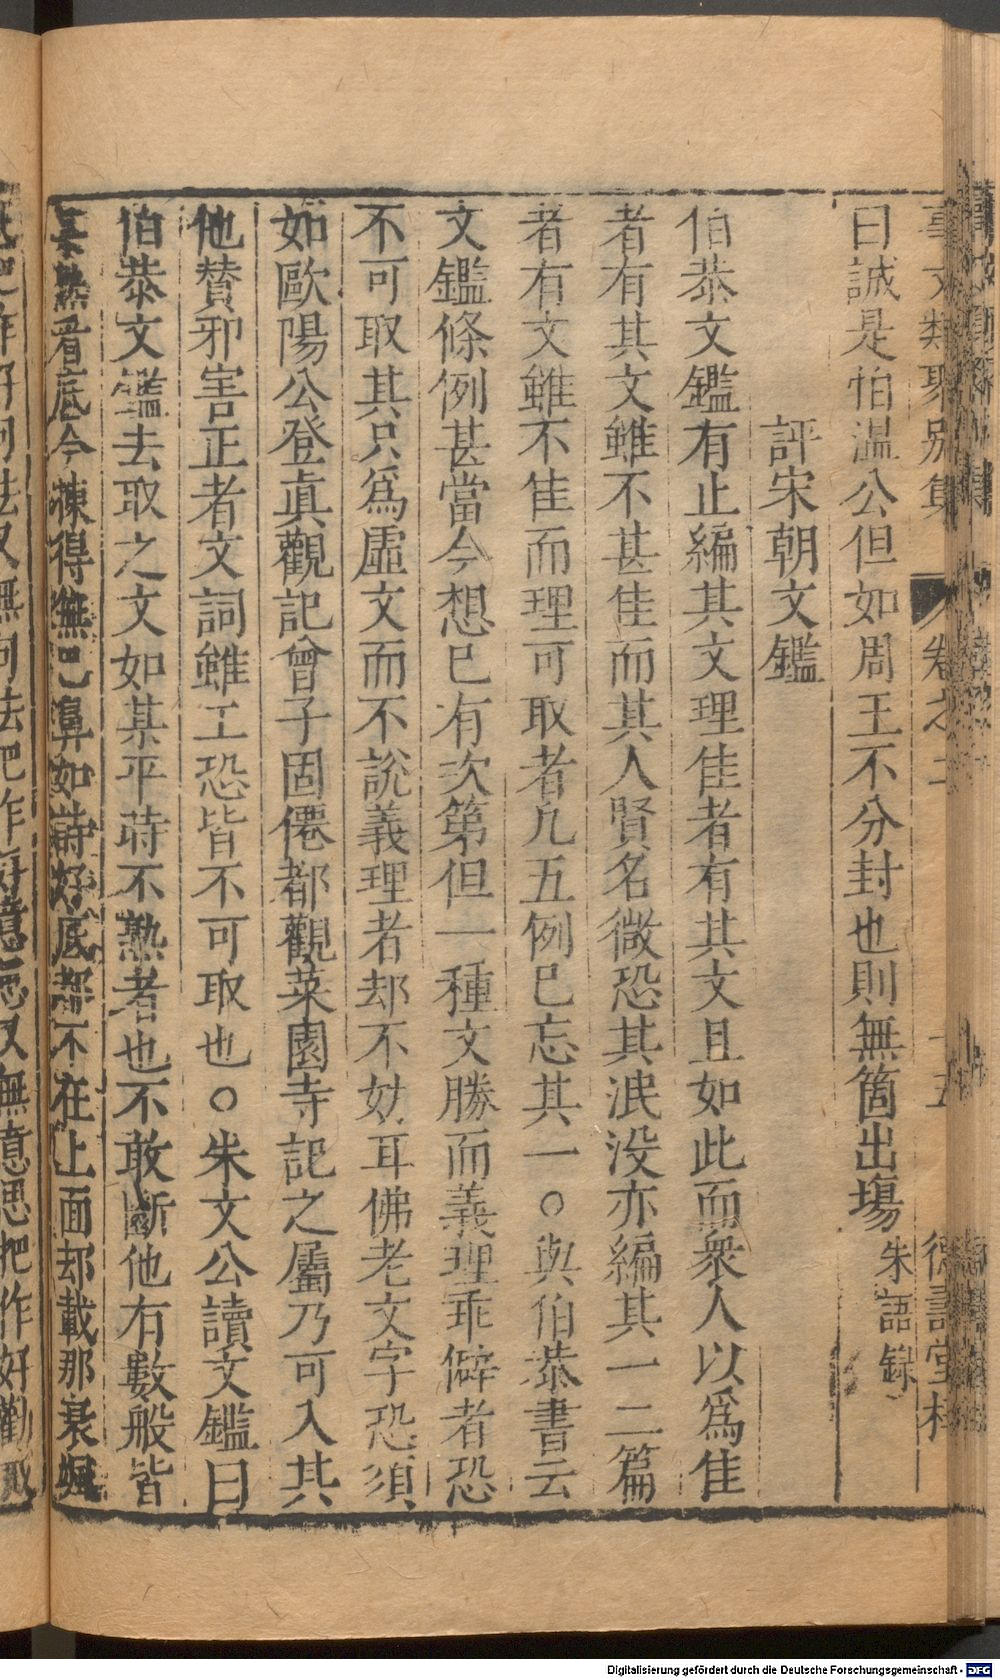 事文類聚別集 卷之二 十五 德壽堂梓
曰誠是怕温公但如周王不分封也則無箇出塲 朱語録
評宋朝文鑑
伯恭文鑑有止編其文理佳者有其文且如此而衆人以爲佳
者有其文雖不甚佳而其人賢名微恐其泯没亦編其一二篇
者有文雖不佳而理可取者凢五例已忘其一○與伯恭書云
文鑑條例甚當今想已有次第但一種文勝而義理乖僻者恐
不可取其只爲虚文而不說義理者却不妨耳佛老文字恐須
如歐陽公登眞觀記曾子固僊都觀菜園寺記之屬乃可入其
他賛邪害正者文詞雖工恐皆不可取也○朱文公讀文鑑曰
伯恭文鑑去取之文如某平時不熟者也不敢斷他有數般皆
某熟看底今揀得無巴鼻如詩好底都不在上面却載那衰颯
底把作好句法又無句法把作好意思又無意思把作好勸戒
Digitalisierung gefördert durch die Deutsche Forschungsgemeinschaft - DFG